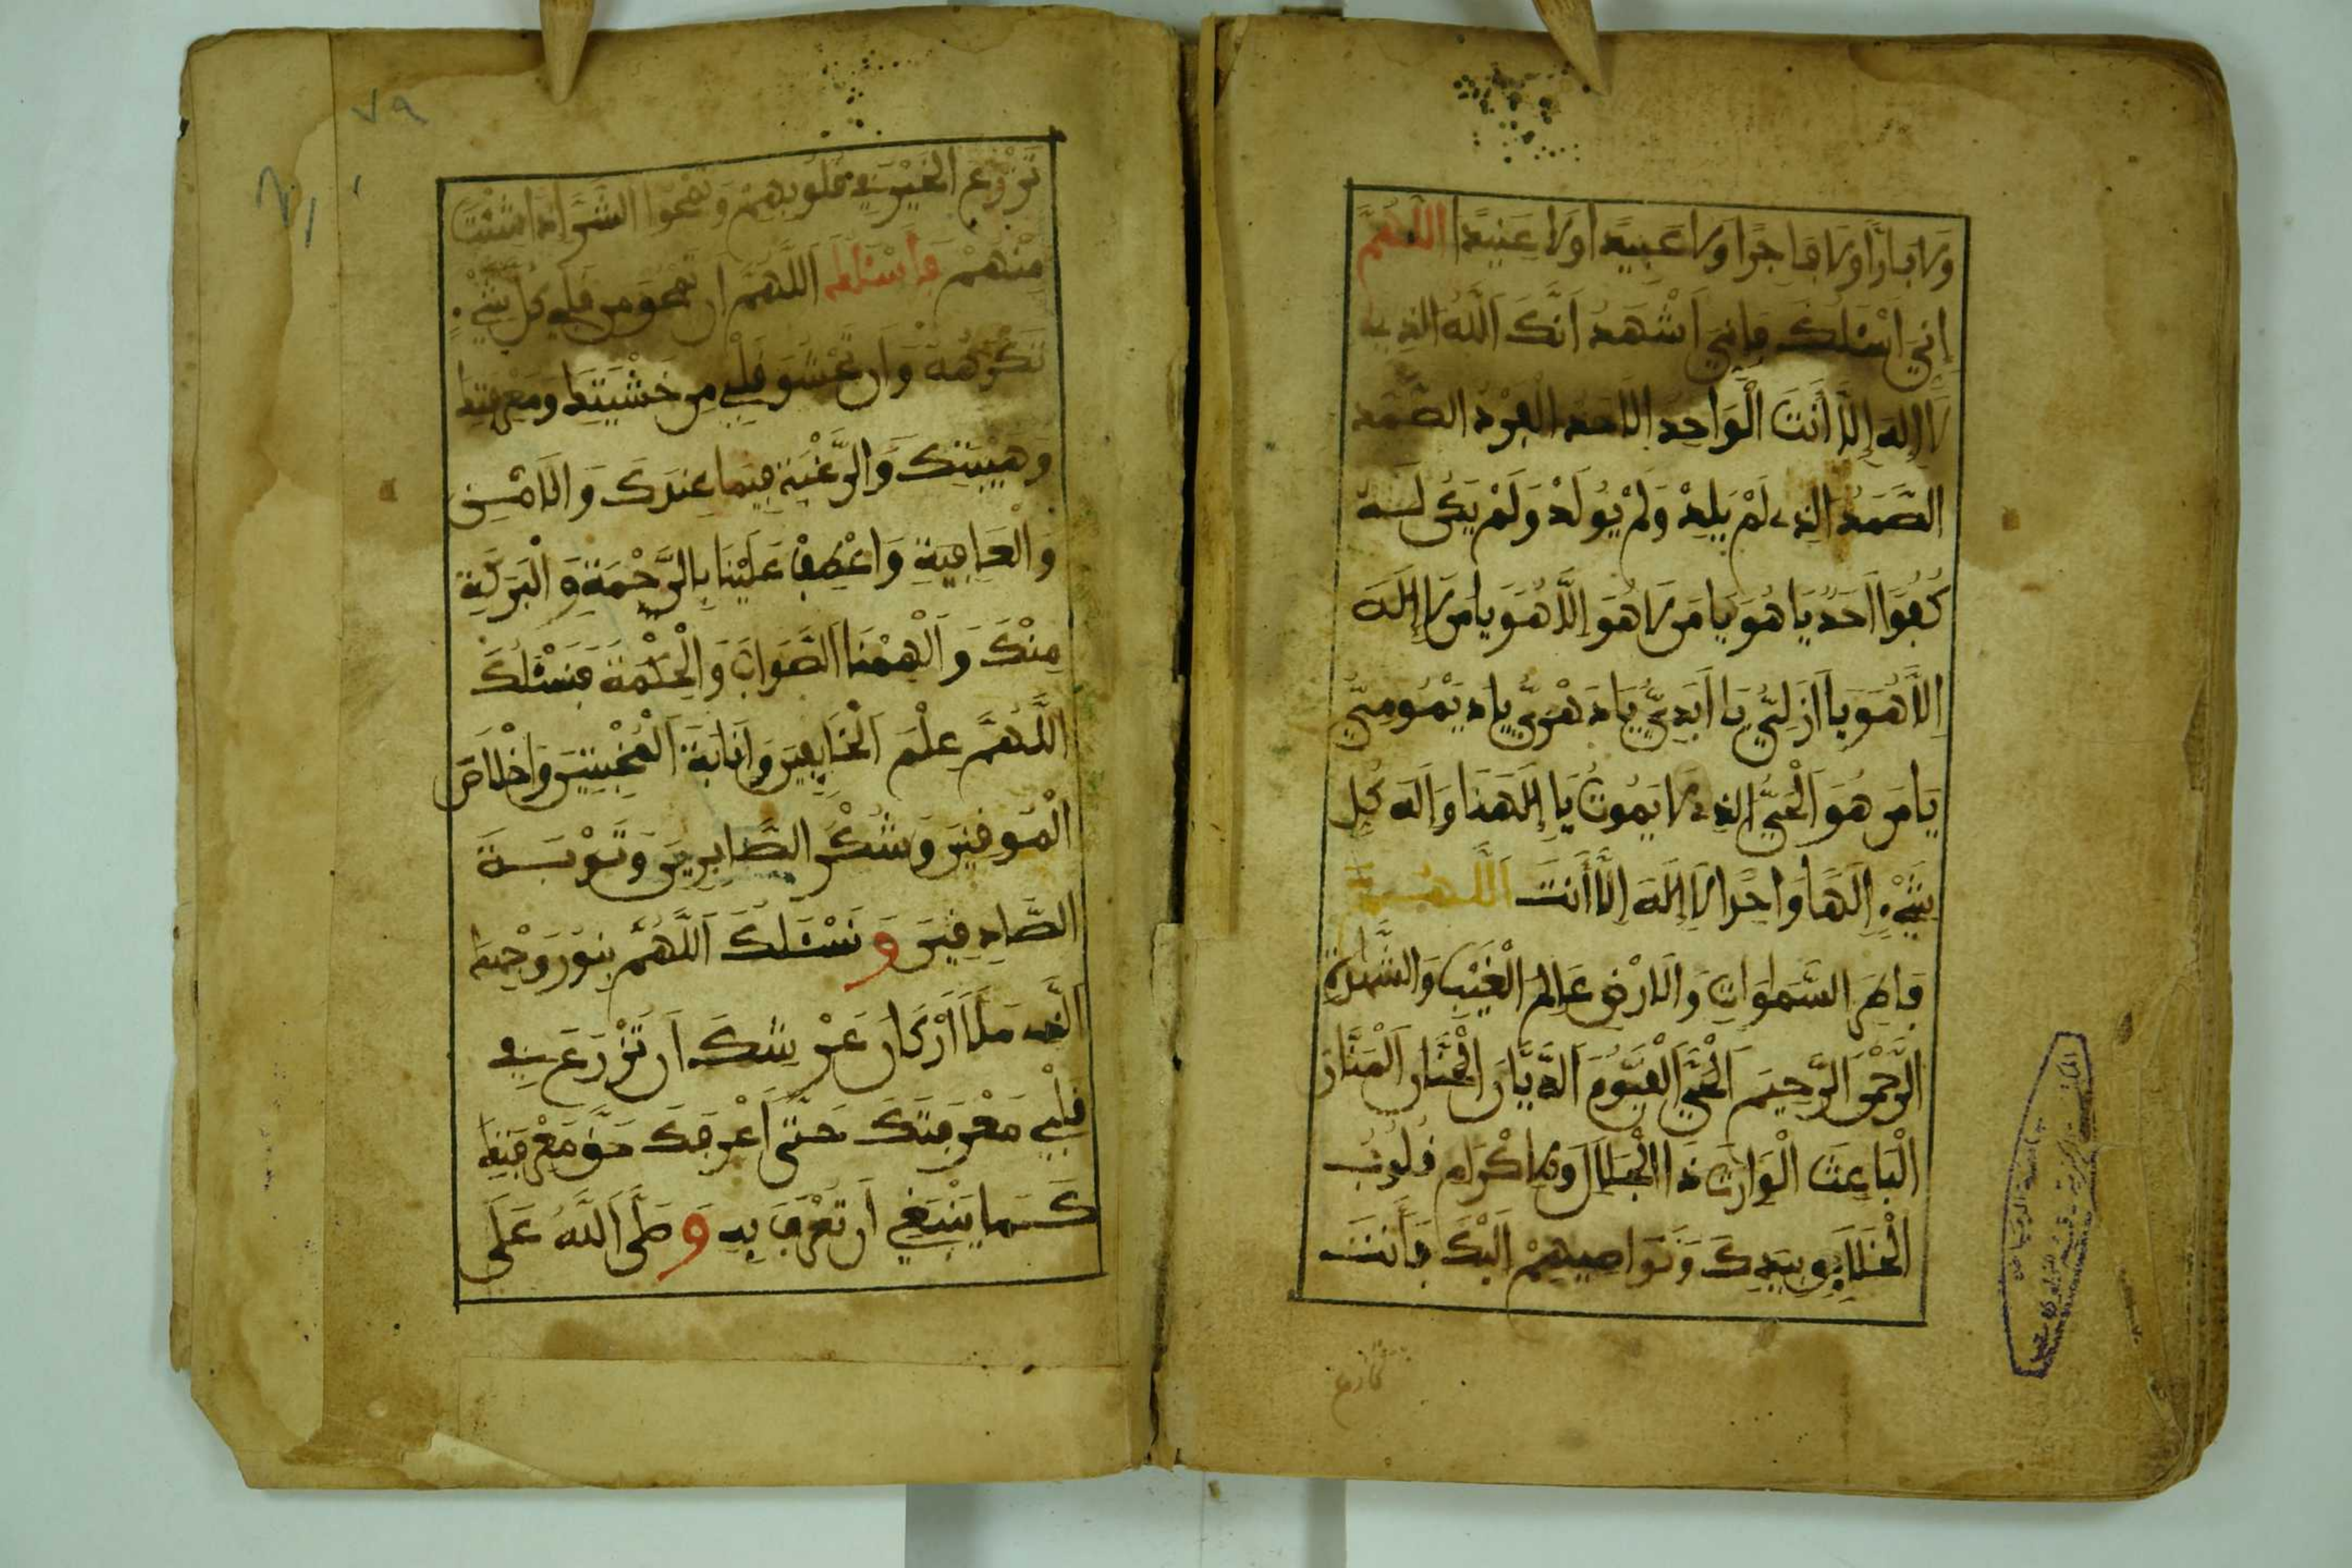 ولا بارا ولا فاجرا ولا عبيدا ولا عنيدا اللهم
إني أسئلك فإني أشهد أنك الله الذي
لا إله إلا أنت الواحد الأحد الفرد الصمد
الصمد الذي لم يلد ولم يولد ولم يكن له
كفوا أحد يا هو يا من لا هو إلا هو يا من لا إله
إلا هو يا أزلي يا أبدي يا دهري يا ديمومي
يا من هو الحي الذي لا يموت يا إلهنا وإله كل
شيء إلها واحدا لا إله إلا أنت اللهم
فاطر السموات والأرض عالم الغيب والشهادة
الرحمن الرحيم الحي القيوم الديان الحنان المنان
الباعث الوارث ذا الجلال والإكرام قلوب
الخلايق بيدك ونواصيهم إليك فأنت
٧٩
تزرع الخير في قلوبهم وتمحوا الشر إذا شئت
منهم فأسئلك اللهم أن تمحو من قلبي كل شيء
تكرهه وأن تحشو قلبي من خشيتك ومعرفتك
وهيبتك والرغبة فيما عندك والأمن
والعافية واعطف علينا بالرحمة والبركة
منك وألهمنا الصواب والحكمة فنسئلك
اللهم علم الخايفين وإنابة المخبتين وإخلاص
الموقنين وشكر الصابرين وتوبة
الصادقين ونسئلك اللهم بنور وجهك
الذي ملأ أركان عرشك أن تزرع في
قلبي معرفتك حتى أعرفك حق معرفتك
كما ينبغي أن تعرف به وصلى الله على